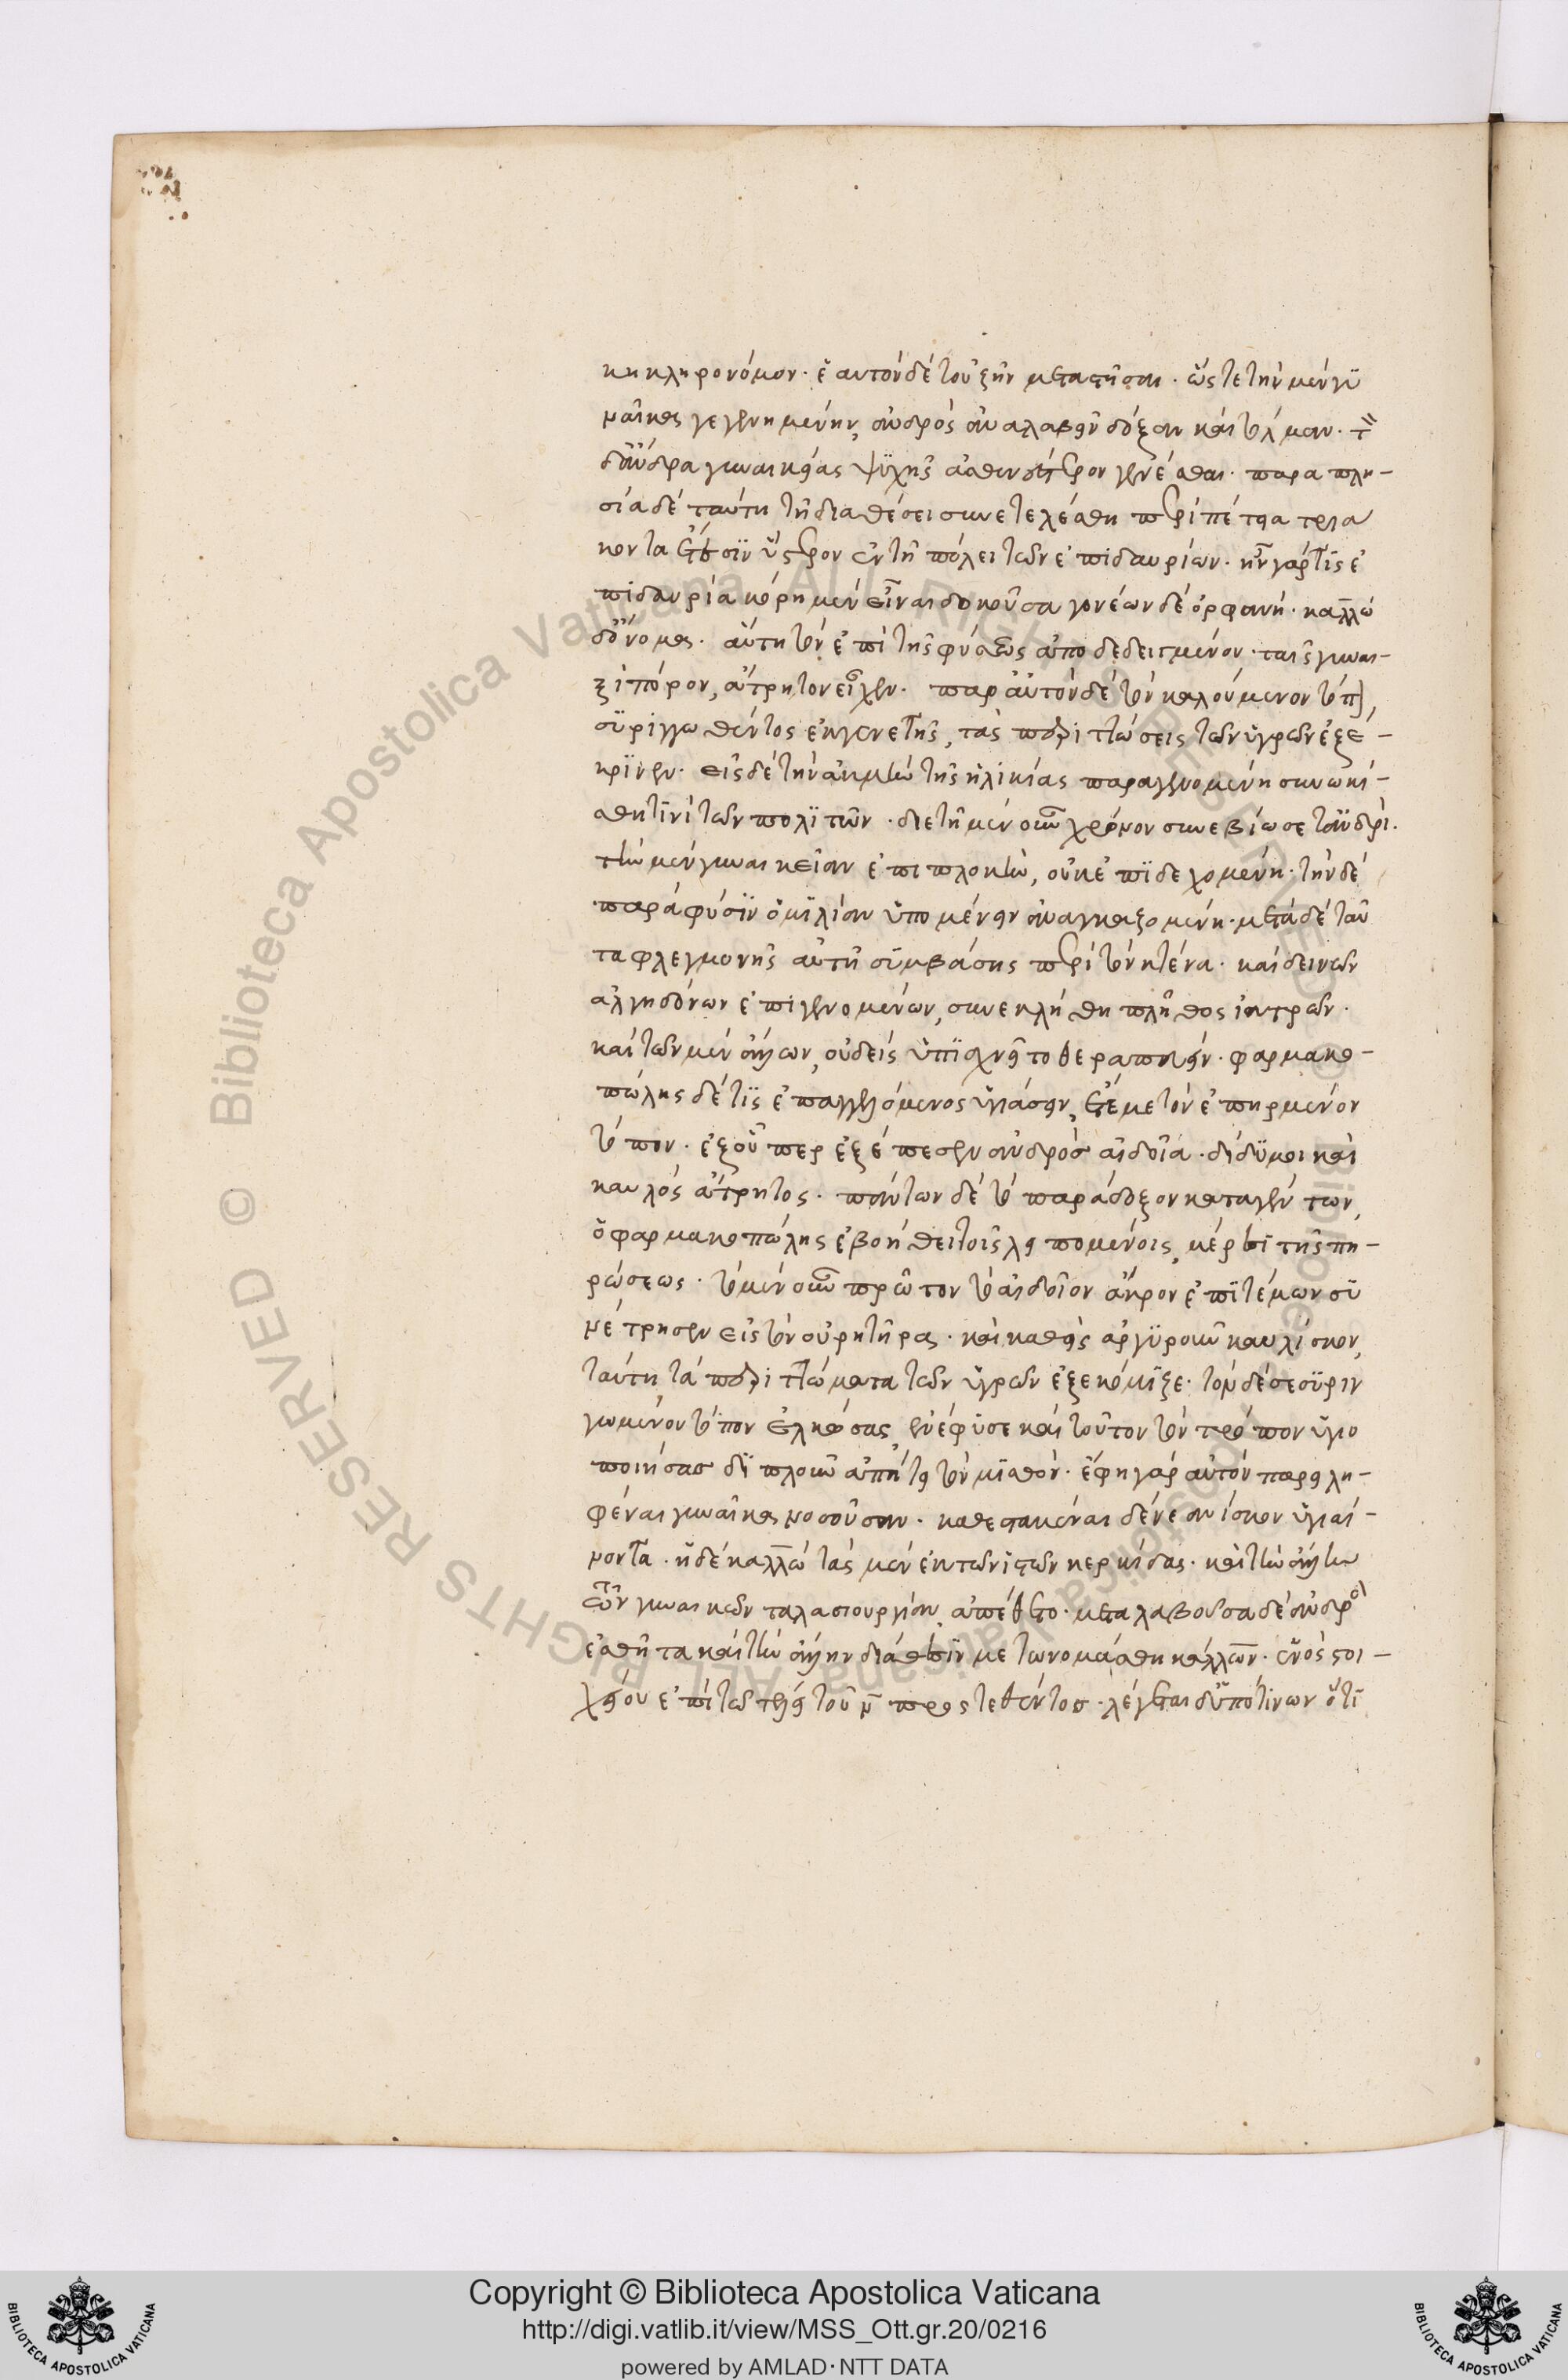 κη κληρονόμον· ἑαυτὸν δὲ τοῦ ζῆν μεταστῆσαι· ὥστε τὴν μὲν γυ
ναῖκα γεγενημένην, ἀνδρὸς ἀναλαβεῖν δόξαν καὶ τόλμαν· τ̀
δ' ἄνδρα γυναικείας ψυχῆς ἀσθενέστερον γενέσθαι· παραπλη-
σία δὲ ταύτη τῆ διαθέσει συνετελέσθη περιπέτεια τρια
κοντα ἔτεσιν ὕστερον ἐν τῆ πόλει τῶν ἐπιδαυρίων· ἦν γάρ τις ἐ
πιδαυρία κόρη μὲν εἶναι δοκοῦσα γονέων δὲ ὀρφανή· καλλὼ
δ' ὄνομα· αὕτη τὸν ἐπὶ τῆς φύσεως ἀποδεδειγμένον ταῖς γυναι-
ξὶ πόρον, ἄτρητον εἶχεν· παρ' αὐτὸν δὲ τὸν καλούμενον
συριγγωθέντος ἐκ γενετῆς, τὰς περιττώσεις τῶν ὑγρῶν ἐξέ-
κρινεν· εἰς δὲ τὴν ἀκμὴν τῆς ἡλικίας παραγενομένη συνωκί-
σθη τινὶ τῶν πολιτῶν· διετῆ μὲν οὖν χρόνον συνεβίωσε τἀνδρί·
τὴν μὲν γυναικείαν ἐπιπλοκὴν, οὐκ ἐπιδεχομένη· τὴν δὲ
παρὰ φύσιν ὁμιλίαν ὑπομένειν ἀναγκαζομένη· μετὰ δὲ ταῦ
τα φλεγμονῆς αὐτῆ συμβάσης περὶ τὸν κτένα· καὶ δεινῶν
ἀλγηδόνων ἐπιγενομένων, συνεκλήθη πλῆθος ἰατρῶν·
καὶ τῶν μὲν ἄλλων, οὐδεὶς ὑπισχνεῖτο θεραπεύειν· φαρμακο-
πώλης δέ τις ἐπαγγελλόμενος ὑγιάσειν, ἔτεμε τὸν ἐπηρμένον
τόπον· ἐξ οὗπερ ἐξέπεσεν ἀνδρὸς αἰδοῖα· δίδυμοι καὶ
καυλὸς ἄτρητος· πάντων δὲ τὸ παράδοξον καταπλαγέντων,
ὁ φαρμακοπώλης ἐβοήθει τοῖς λειπομένοις μέρεσι τῆς πη-
ρώσεως· τὸ μὲν οὖν πρῶτον τὸ αἰδοῖον ἄκρον ἐπιτέμων συ
νέτρησεν εἰς τὸν οὐρητῆρα· καὶ καθεὶς ἀργυροῦν καυλίσκον,
ταύτη τὰ περιττώματα τῶν ὑγρῶν ἐξεκόμιζε· τὸν δὲ σεσυριγ
γωμένον τόπον ἑλκώσας, συνέφυσε καὶ τοῦτον τὸν τρόπον ὑγιο
ποιήσας διπλοῦν ἀπήτει τὸν μισθόν· ἔφη γὰρ αὐτὸν παρειλη-
φέναι γυναῖκα νοσοῦσαν· καθεστακέναι δὲ νεανίσκον ὑγιαί-
νοντα· ἡ δὲ καλλὼ τὰς μὲν ἐκ τῶν ἱστῶν κερκίδας· καὶ τὴν ἄλλην
τῶν γυναικῶν ταλασιουργίαν ἀπέθετο· μεταλαβοῦσα δὲ ἀνδρὸς
ἐσθῆτα καὶ τὴν ἄλλην διάθεσιν μετωνομάσθη κάλλων· ἑνὸς στοι-
χείου ἐπὶ τῶ τέλει τοῦ ν̄ προστεθέντος· λέγεται δ' ὑπό τινων ὅτι
Biblioteca Apostolica Vaticana ALL RIGHTS RESERVED ©
Copyright © Biblioteca Apostolica Vaticana
http://digi.vatlib.it/view/MSS_Ott.gr.20/0216
powered by AMLAD·NTT DATA
BIBLIOTECA APOSTOLICA VATICANA
BIBLIOTECA APOSTOLICA VATICANA